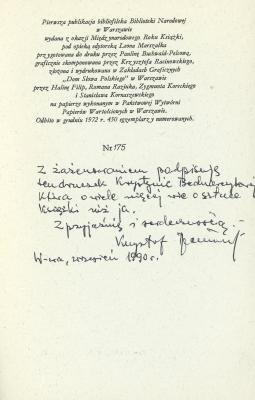 Pierwsza publikacja bibliofilska Biblioteki Narodowej
w Warszawie
wydana z okazji Międzynarodowego Roku Książki,
pod opieką edytorską Leona Marszałka
przygotowana do druku przez Paulinę Buchwald-Pelcową,
graficznie skomponowana przez Krzysztofa Racinowskiego,
złożona i wydrukowana w Zakładach Graficznych
„Dom Słowa Polskiego" w Warszawie
przez Halinę Filip, Romana Raziuka, Zygmunta Koreckiego
i Stanisława Kornaszewskiego
na papierze wykonanym w Państwowej Wytwórni
Papierów Wartościowych w Warszawie.
Odbito w grudniu 1972 r. 450 egzemplarzy numerowanych.
Nr 175
Z zażenowaniem podpisuję
ten druczek Krystynie
która o wiele więcej wie o sztuce
książki niż ja.
Z przyjaźnią i serdecznością –
Krzysztof
W-wa, wrzesień 1990 r.